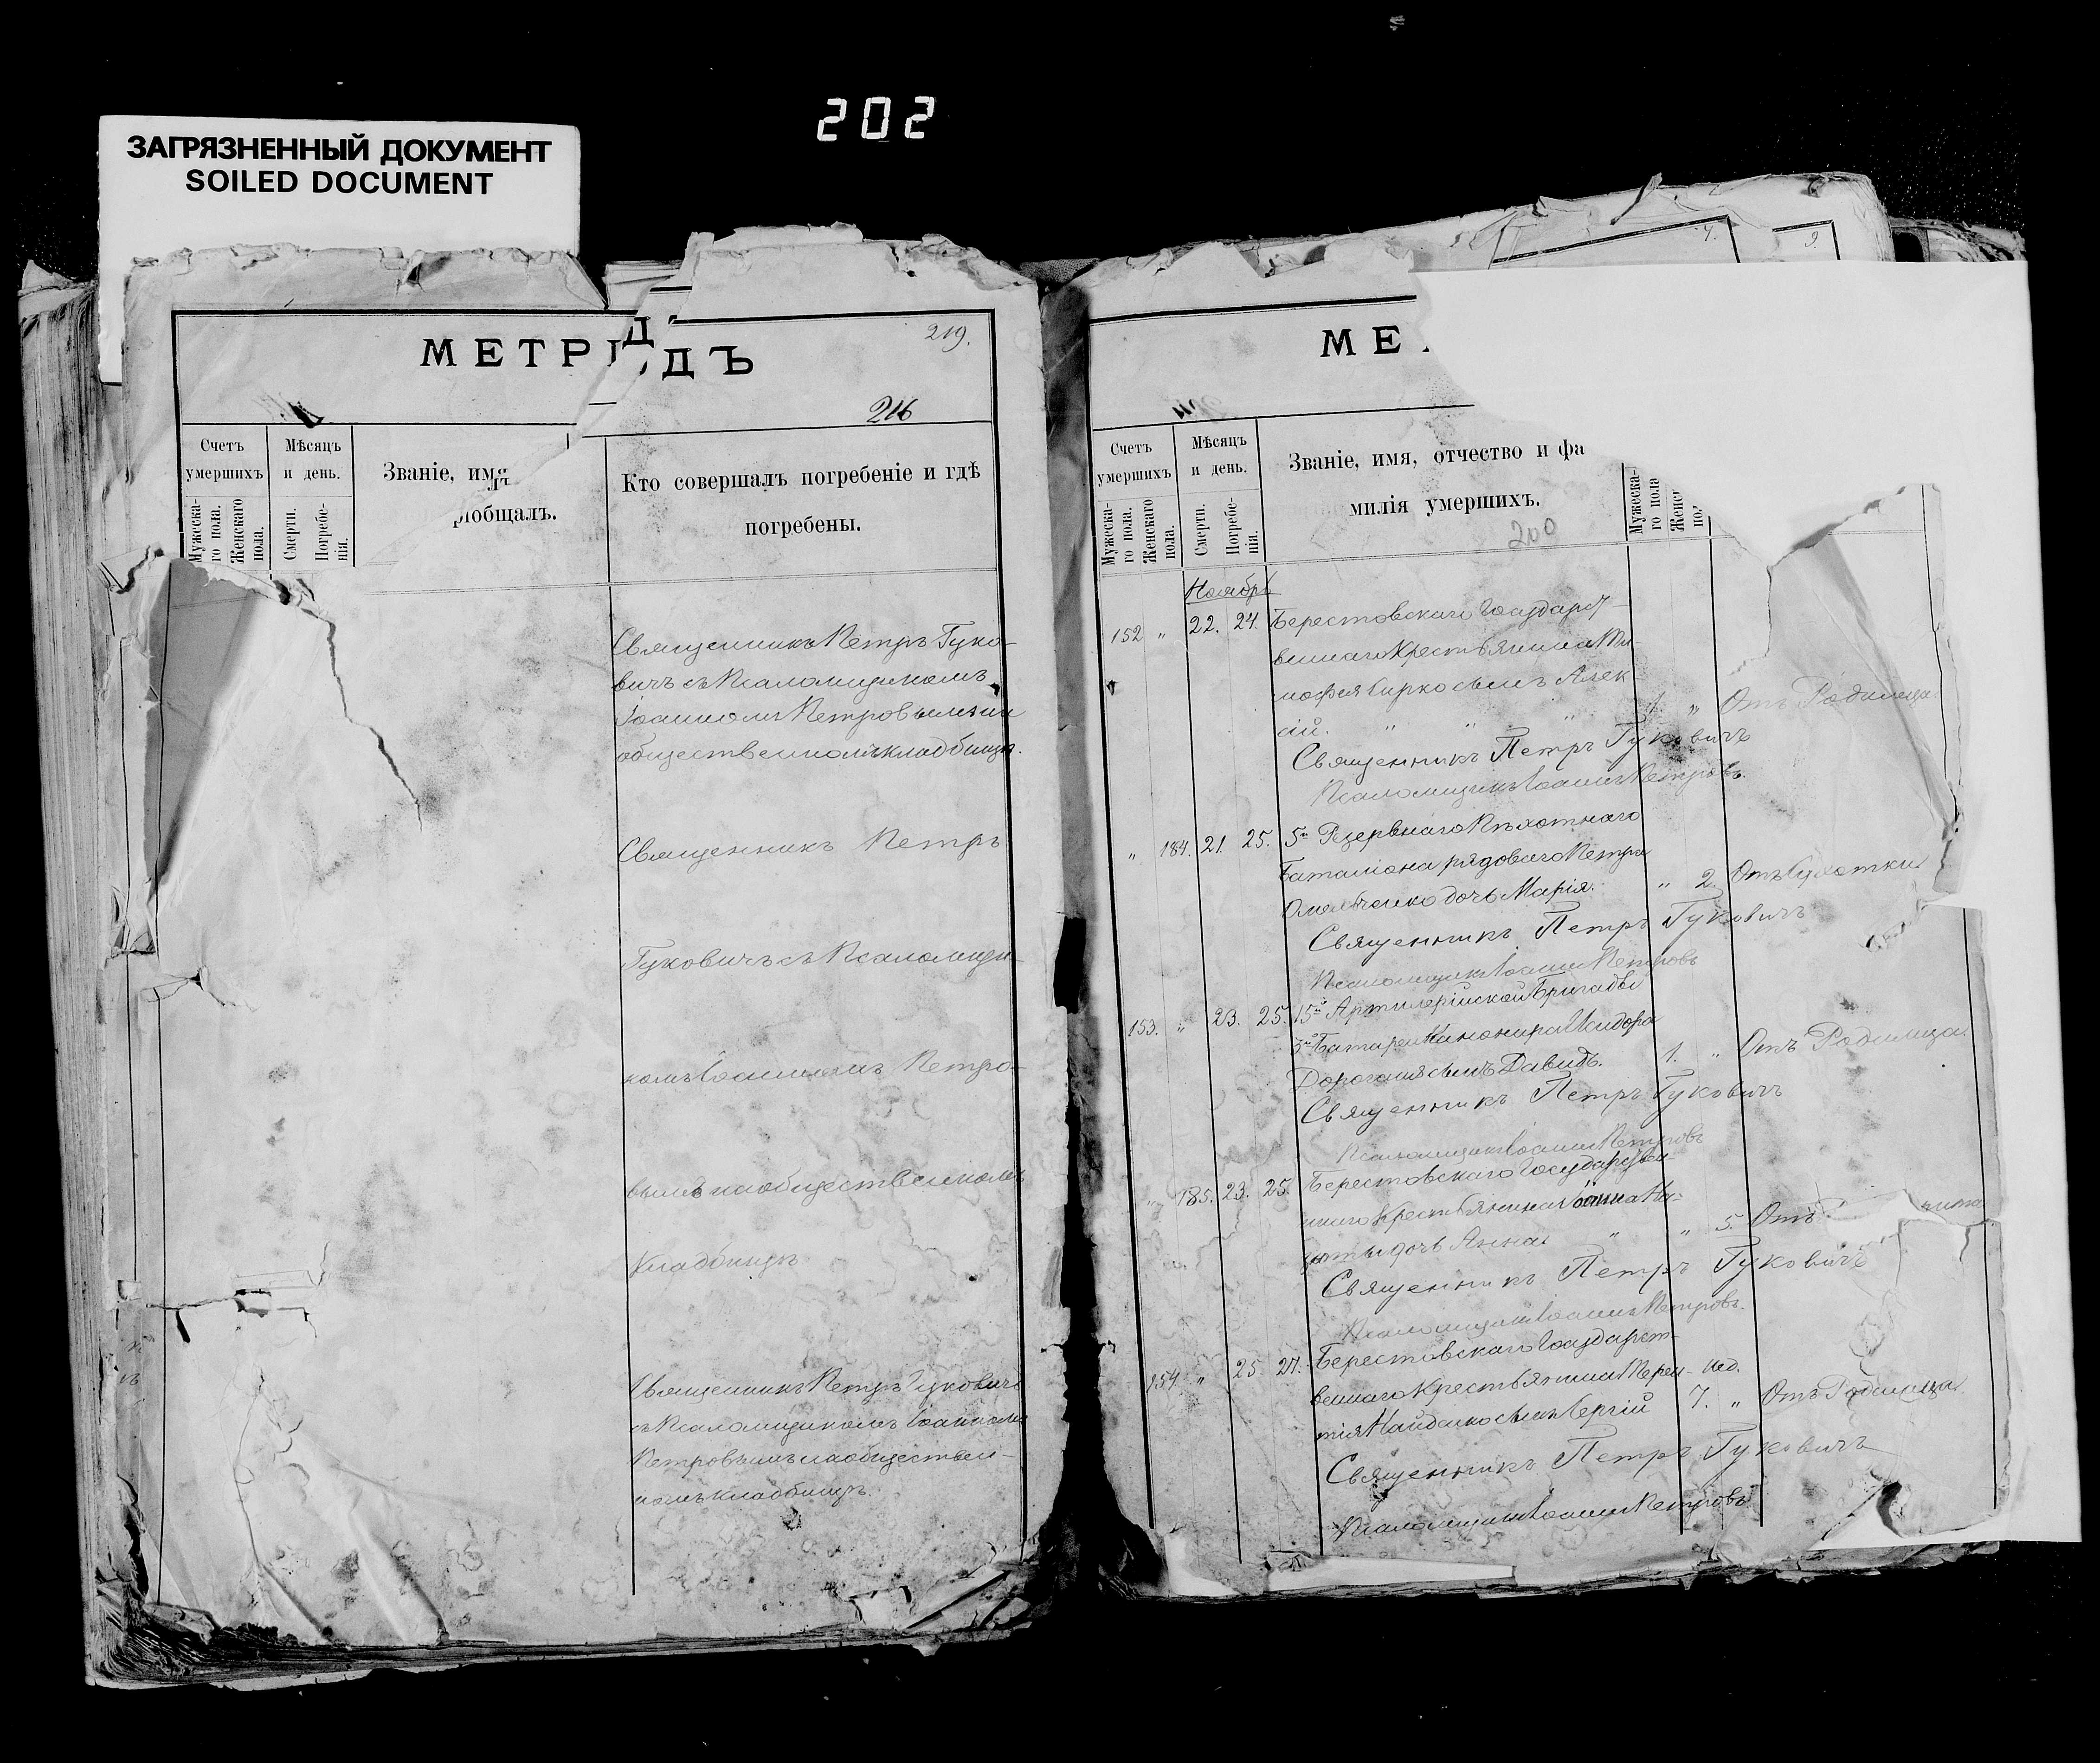 202
ЗАГРЯЗНЕННЫЙ ДОКУМЕНТ
SOILED DOCUMENT
219.
МЕТРИ
Д
ДЪ
216
Счетъ умершихъ
Мѣсяцъ и день.
Званіе, имя
Кто совершалъ погребеніе и гдѣ
погребены.
общалъ.
Мужеска-го пола.
Женскаго пола.
Смерти.
Погребе-нія.
Священникъ Петръ Гуко-
вичъ съ Псаломщикомъ
Іоанномъ Петровымъ на
общественномъ кладбищѣ.
Священникъ Петръ
Гуковичъ съ Псаломщи-
комъ Іоанномъ Петро-
вымъ на общественномъ
кладбищѣ
Священникъ Петръ Гуковичъ
съ Псаломщикомъ Іоанномъ
Петровымъ на обществен-
номъ кладбищѣ.
4.
9.
МЕ
Счетъ умершихъ
Мѣсяцъ и день.
Званіе, имя, отчество и фа
милія умершихъ.
200
Мужеска-го пола.
Женскаго пола.
Смерти.
Погребе-нія.
Мужеска-го пола
Ноябрь
152 " 22. 24. Берестовскаго Государст-
веннаго Крестьянина Ти-
мофея Сирко сынъ Алек-
сій. " " " 1. " Отъ Родимца
Священникъ Петръ Гуковичъ
Псаломщикъ Іоаннъ Петровъ.
" 184. 21. 25. 5го Резервнаго Пѣхотнаго
Баталіона рядоваго Петра
Омельченко дочь Марія. " 2. Отъ Сухотки
Священникъ Петръ Гуковичъ
Псаломщикъ Іоаннъ Петровъ
153. " 23. 25. 15й Артилерійской Бригады
3й Батареи Канонира Исидора
Дорогана сынъ Давидъ. 1. " Отъ Родимца.
Священникъ Петръ Гуковичъ
Псаломщикъ Іоаннъ Петровъ
" 185. 23. 25. Берестовскаго Государствен-
наго Крестьянина Іоанна
дочь Анна " " 5. Отъ
Священникъ Петръ Гуковичъ
Псаломщикъ Іоаннъ Петровъ.
154. " 25 27. Берестовскаго Государст-
веннаго Крестьянина Терен- нед.
тія Найденко сынъ Сергій 7. " Отъ Родимца
Священникъ Петръ Гуковичъ
Псаломщикъ Іоаннъ Петровъ